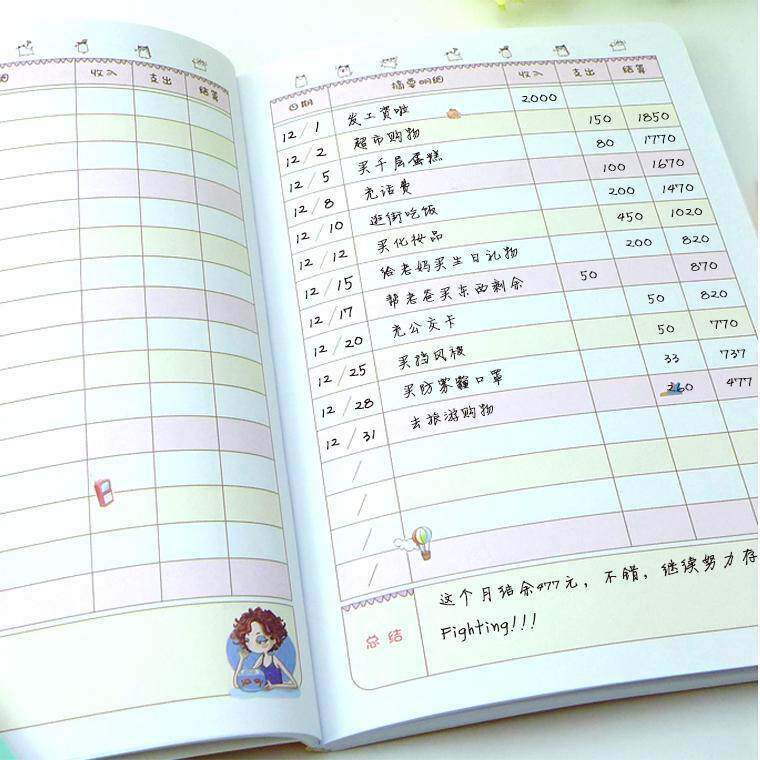 细 收入 支出 结算
日期 摘要明细 收入 支出 结算
12/1 发工资啦 2000
12/2 超市购物 150 1850
12/5 买千层蛋糕 80 1770
12/8 充话费 100 1670
12/10 逛街吃饭 200 1470
12/12 买化妆品 450 1020
12/15 给老妈买生日礼物 200 820
12/17 帮老爸买东西剩余 50 870
12/20 充公交卡 50 820
12/25 买挡风被 50 770
12/28 买防雾霾口罩 33 737
12/31 去旅游购物 260 477
/
/
/
/
总结 这个月结余477元，不错，继续努力存
Fighting!!!